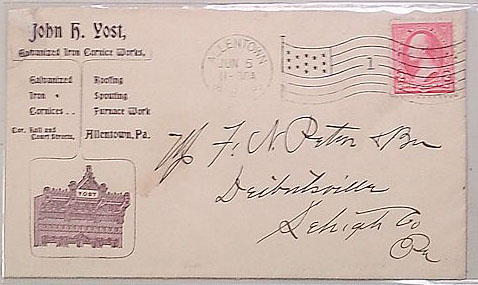 John H. Yost,
Galvanized Iron Cornice Works,
Galvanized Roofing
Iron • Spouting
Cornices . . Furnace Work
Cor. Hall and
Court Streets, Allentown, Pa.
YOST
ALLENTOWN
JUN 5
11-30A
1
F. N. Peter & Bro
Deibertsville
Lehigh Co
Pa